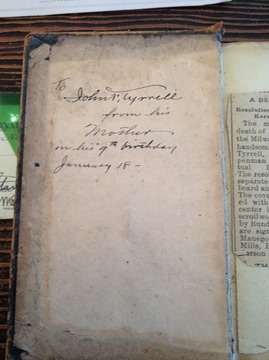 To
John F. Tyrrell
from his
Mother
on his 9th birthday
January 18 -
A BE
Resolution
The m
death of
the Milw
handsom
Tyrrell,
penman
tual
The reso
separate
board an
The cove
ed with
center
scrollwo
by Bund
are sign
Manego
Mills,
erson